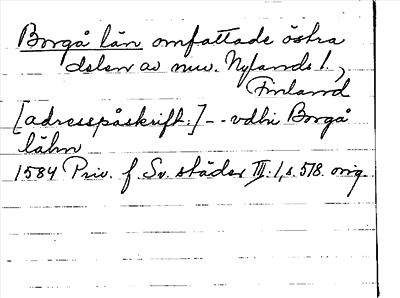 Borgå län omfattade östra
delen av nuv. Nylands l.,
Finland
[adresspåskrift:] - - vdhi Borgå
lähn
1584 Priv. f. Sv. städer III:1, s. 518. orig.